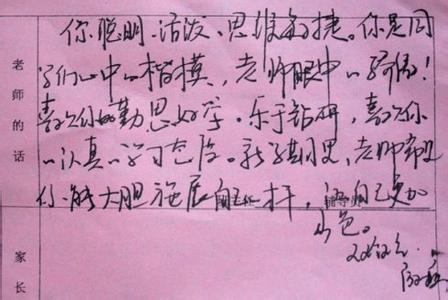 老师的话
你聪明、活泼、思维敏捷。你是同
学们心中的楷模,老师眼中的骄傲!
喜欢你的勤思好学、乐于钻研,喜欢你
的认真的学习态度。新学期里,老师希望
你能大胆施展自己 才,让自己更加
出色。
家长